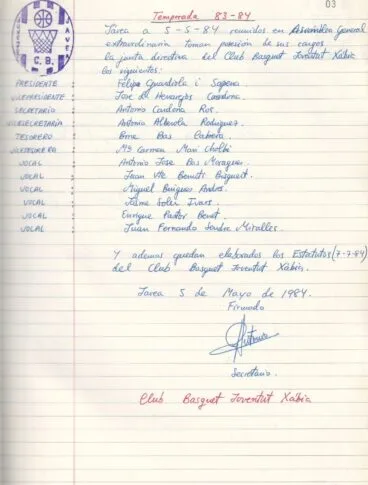 03
JAVEA
C.B.
Temporada 83-84
Javea a 5-5-84 reunidos en Asamblea General
extraordinaria toman posesión de sus cargos
la junta directiva del Club Basquet Joventut Xabia
los siguientes:
PRESIDENTE : Felipe Guardiola i Sapena
VICEPRESIDENTE : Jose de Henarejos Cardona.
SECRETARIO : Antonio Cardona Ros.
VICESECRETARIA : Antonia Alberola Rodriguez.
TESORERO : Bme Bas Cabrera.
VICETESORERO : Mª Carmen Mari Cholbi
VOCAL : Antonio Jose Bas Moragues.
VOCAL : Juan Vte Benuti Bisquert.
VOCAL : Miguel Buigues Andrés.
VOCAL : Jaime Soler Ivars.
VOCAL : Enrique Pastor Benet.
VOCAL : Juan Fernando Sendra Miralles.
Y ademas quedan elaborados los Estatutos (7-7-84)
del Club Basquet Joventut Xabia.
Javea 5 de Mayo de 1984.
Firmado
Antonio
Secretario.
Club Basquet Joventut Xabia